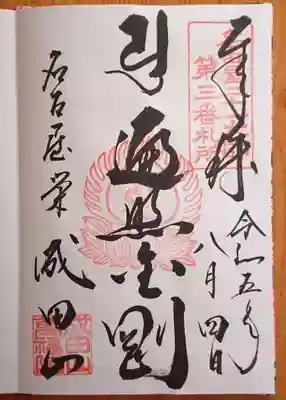 奉拝
第三番札所
令和五年
八月四日
遍照金剛
名古屋栄
成田山